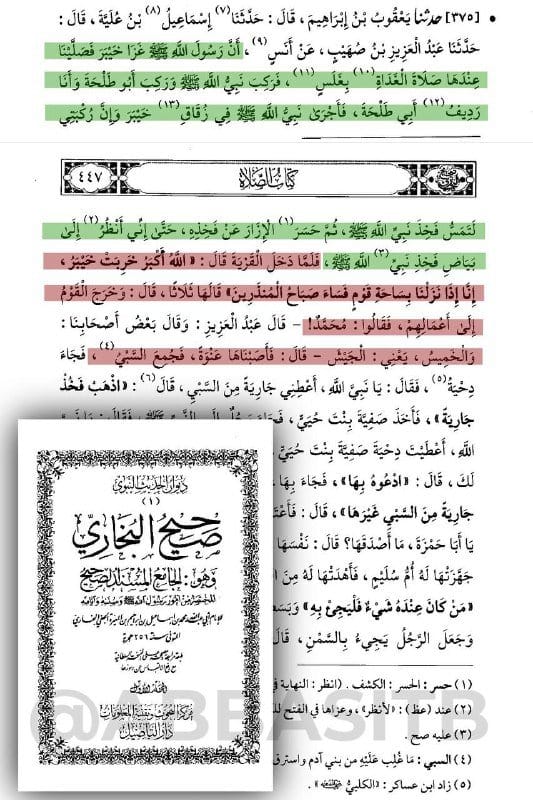 • [٣٧٥] حدثنا يَعْقُوبُ بْنُ إِبْرَاهِيمَ، قَالَ: حَدَّثَنَا(٧) إِسْمَاعِيلُ(٨) بْنُ عُلَيَّةَ، قَالَ:
حَدَّثَنَا عَبْدُ الْعَزِيزِ بْنُ صُهَيْبٍ، عَنْ أَنَسٍ(٩)، أَنَّ رَسُولَ اللَّهِ ﷺ غَزَا خَيْبَرَ فَصَلَّيْنَا
عِنْدَهَا صَلَاةَ الْغَدَاةِ(١٠) بِغَلَسٍ(١١)، فَرَكِبَ نَبِيُّ اللَّهِ ﷺ وَرَكِبَ أَبُو طَلْحَةَ وَأَنَا
رَدِيفُ(١٢) أَبِي طَلْحَةَ، فَأَجْرَى نَبِيُّ اللَّهِ ﷺ فِي زُقَاقِ(١٣) خَيْبَرَ وَإِنَّ رُكْبَتِي
كتاب الصلاة
٤٤٧
لَتَمَسُّ فَخِذَ نَبِيِّ اللَّهِ ﷺ، ثُمَّ حَسَرَ(١) الْإِزَارَ عَنْ فَخِذِهِ، حَتَّى إِنِّي أَنْظُرُ(٢) إِلَى
بَيَاضِ فَخِذِ نَبِيِّ(٣) اللَّهِ ﷺ، فَلَمَّا دَخَلَ الْقَرْيَةَ قَالَ: «اللَّهُ أَكْبَرُ خَرِبَتْ خَيْبَرُ،
إِنَّا إِذَا نَزَلْنَا بِسَاحَةِ قَوْمٍ فَسَاءَ صَبَاحُ الْمُنْذَرِينَ» قَالَهَا ثَلَاثًا، قَالَ: وَخَرَجَ الْقَوْمُ
إِلَى أَعْمَالِهِمْ، فَقَالُوا: مُحَمَّدٌ! - قَالَ عَبْدُ الْعَزِيزِ: وَقَالَ بَعْضُ أَصْحَابِنَا:
وَالْخَمِيسُ، يَعْنِي: الْجَيْشَ - قَالَ: فَأَصَبْنَاهَا عَنْوَةً، فَجُمِعَ السَّبْيُ(٤)، فَجَاءَ
دِحْيَةُ(٥)، فَقَالَ: يَا نَبِيَّ اللَّهِ، أَعْطِنِي جَارِيَةً مِنَ السَّبْيِ، قَالَ(٦): «اذْهَبْ فَخُذْ
جَارِيَةً»، فَأَخَذَ صَفِيَّةَ بِنْتَ حُيَيٍّ، فَجَاءَ
اللَّهِ، أَعْطَيْتَ دِحْيَةَ صَفِيَّةَ بِنْتَ حُيَيٍّ
لَكَ، قَالَ: «ادْعُوهُ بِهَا»، فَجَاءَ بِهَا
جَارِيَةً مِنَ السَّبْيِ غَيْرَهَا»، قَالَ:
يَا أَبَا حَمْزَةَ، مَا أَصْدَقَهَا؟ قَالَ: نَفْسَهَا
جَهَّزَتْهَا لَهُ أُمُّ سُلَيْمٍ، فَأَهْدَتْهَا لَهُ مِنَ
«مَنْ كَانَ عِنْدَهُ شَيْءٌ فَلْيَجِئْ بِهِ»
وَجَعَلَ الرَّجُلُ يَجِيءُ بِالسَّمْنِ، قَالَ
(١) حسر: الحسر: الكشف. (انظر: النهاية في
(٢) عند (عظ): «لأنظر»، وعزاها في الفتح
(٣) عليه صح.
(٤) السبي: ما غُلِب عَلَيْه من بني آدم واسترق
(٥) زاد ابن عساكر: «الكلبيُّ».
ديوان الحديث النبوي
(١)
صحيح البخاري
وهو: الجامع المسند الصحيح
المجلد الأول
مركز البحوث وتقنية المعلومات
دار التأصيل
@ABBASITB